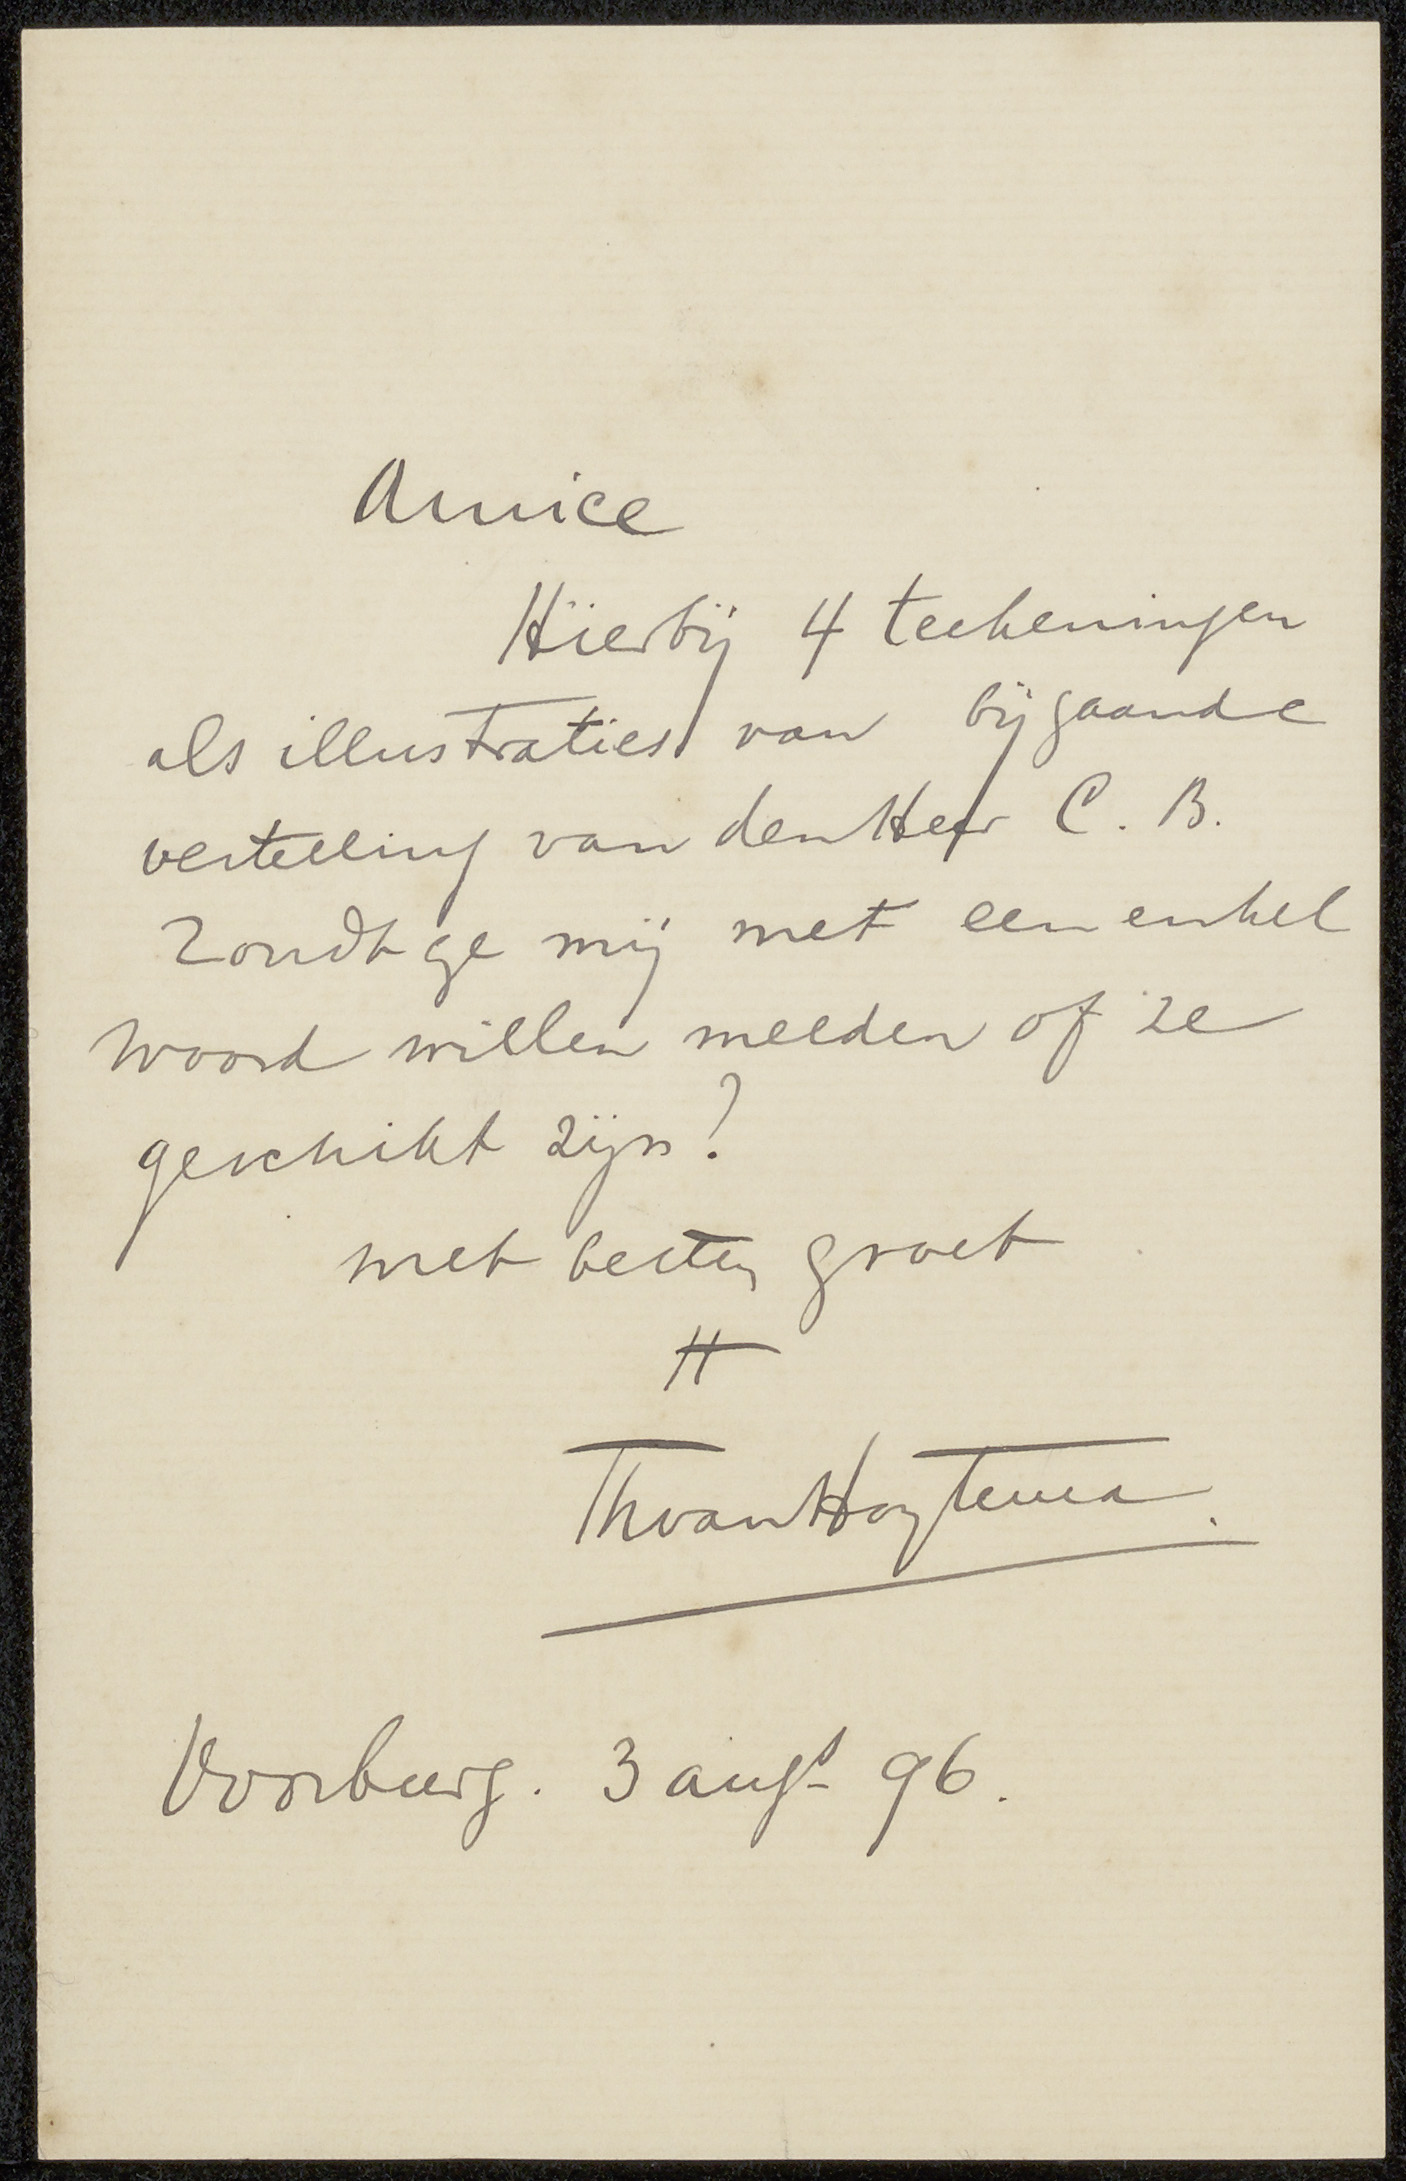 Amice
Hierbij 4 teekeningen
als illustraties van bijgaande
vertelling van den Heer C. B.
Zoudt ge mij met een enkel
woord willen melden of ze
geschikt zijn?
met besten groet
tt
ThvanHoytema.
Voorburg. 3 augt 96.